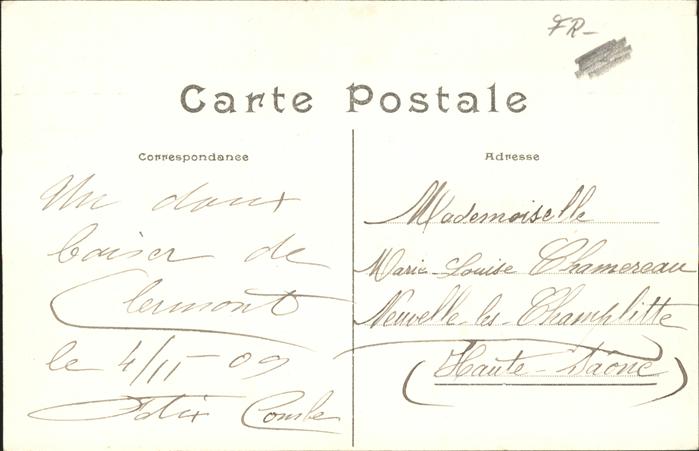 FR-
Carte Postale
Correspondance
Un doux
baiser de
Clermont
le 4/11-09
Félix Combe
Adresse
Mademoiselle
Marie-Louise Chamereau
Neuvelle-les-Champlitte
(Haute-Saône)